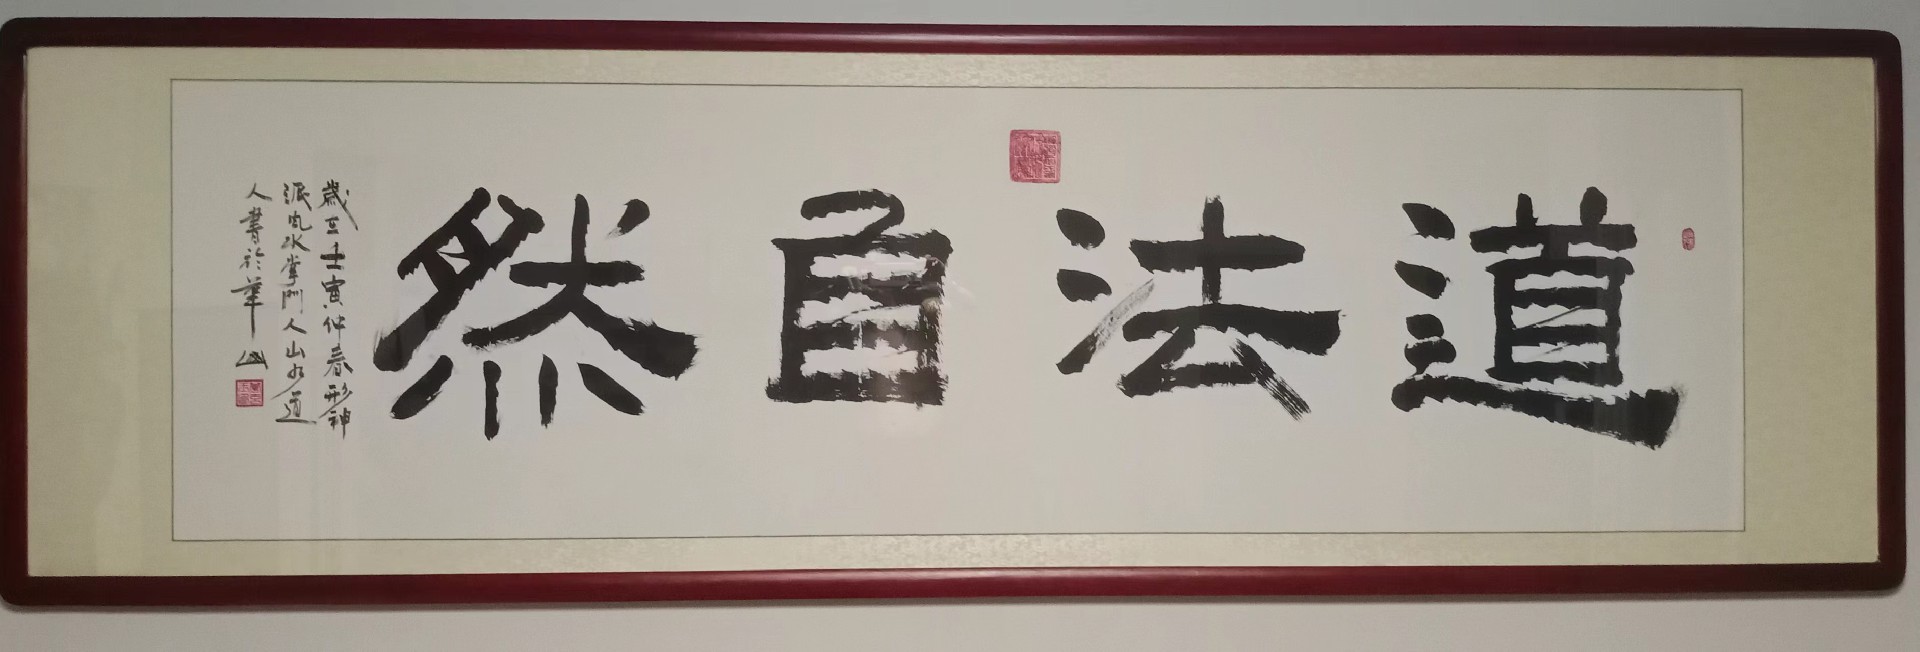 道法自然
歲在壬寅仲春形神
派風水掌門人山水道
人書於華山